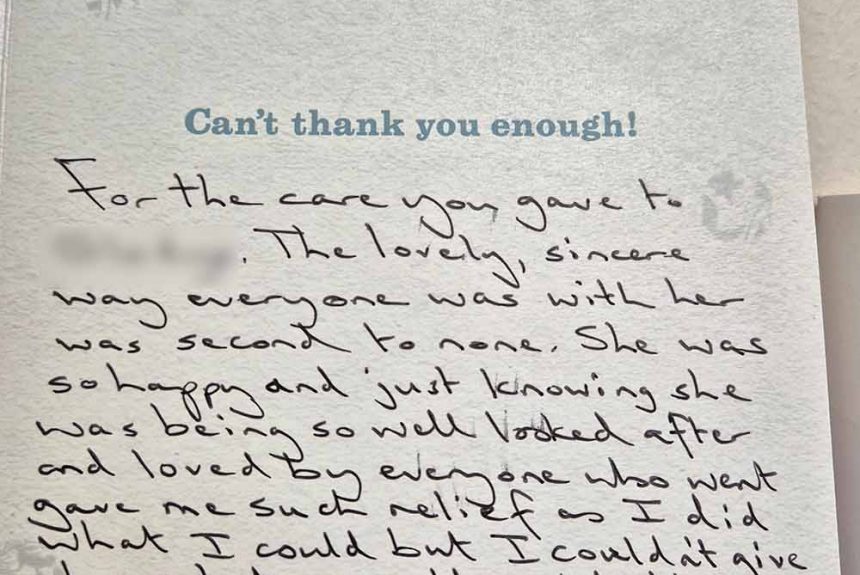 Can't thank you enough!
For the care you gave to
. The lovely, sincere
way everyone was with her
was second to none. She was
so happy and just knowing she
was being so well looked after
and loved by everyone who went
gave me such relief as I did
what I could but I couldn't give